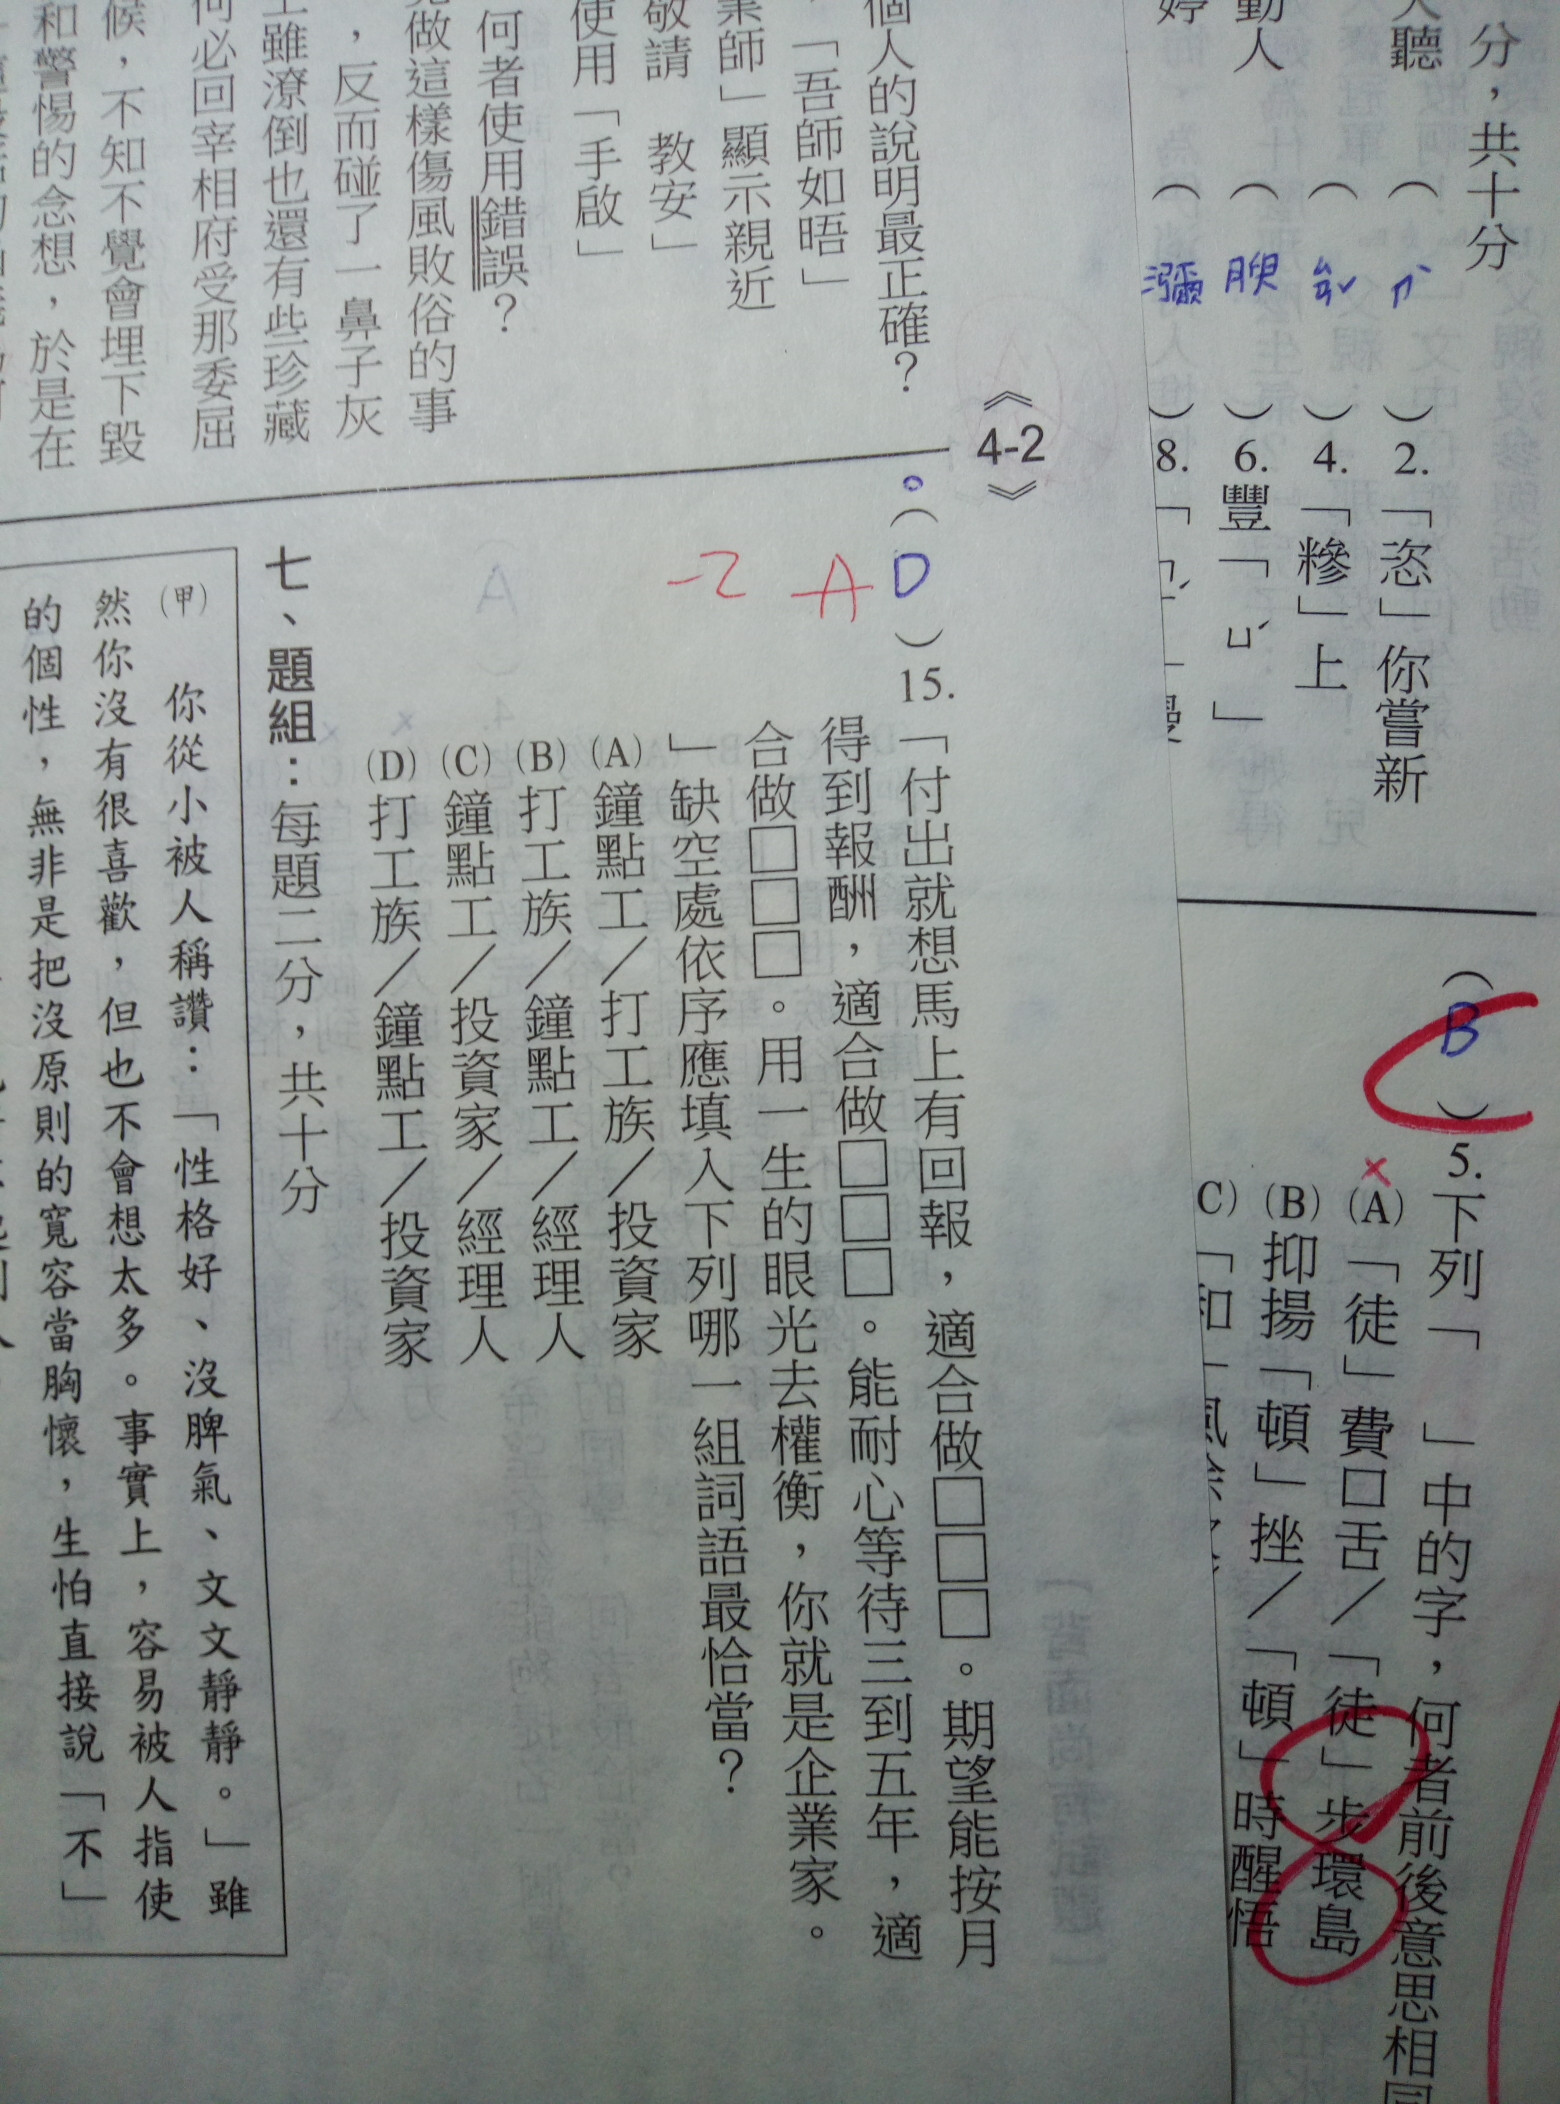 分，共十分
人聽（ㄕˋ）2.「恣」你嘗新
4.「糝」上
動人（腴）6.豐「ㄩˊ」
婷（瀰）8.「
（B）5.下列「　」中的字，何者前後意思相同
(A)「徒」費口舌／「徒」步環島
(B)抑揚「頓」挫／「頓」時醒悟
C)「和
《4-2》
個人的說明最正確？
，「吾師如晤」
業師」顯示親近
敬請　教安」
使用「手啟」
何者使用錯誤？
做這樣傷風敗俗的事
，反而碰了一鼻子灰
雖潦倒也還有些珍藏
何必回宰相府受那委屈
候，不知不覺會埋下毀
和警惕的念想，於是在
（D）15.「付出就想馬上有回報，適合做□□□。期望能按月
得到報酬，適合做□□□。能耐心等待三到五年，適
合做□□□。用一生的眼光去權衡，你就是企業家。
」缺空處依序應填入下列哪一組詞語最恰當？
A
-2
(A)鐘點工／打工族／投資家
(B)打工族／鐘點工／經理人
(C)鐘點工／投資家／經理人
(D)打工族／鐘點工／投資家
七、題組：每題二分，共十分
(甲)　你從小被人稱讚：「性格好、沒脾氣、文文靜靜。」雖
然你沒有很喜歡，但也不會想太多。事實上，容易被人指使
的個性，無非是把沒原則的寬容當胸懷，生怕直接說「不」